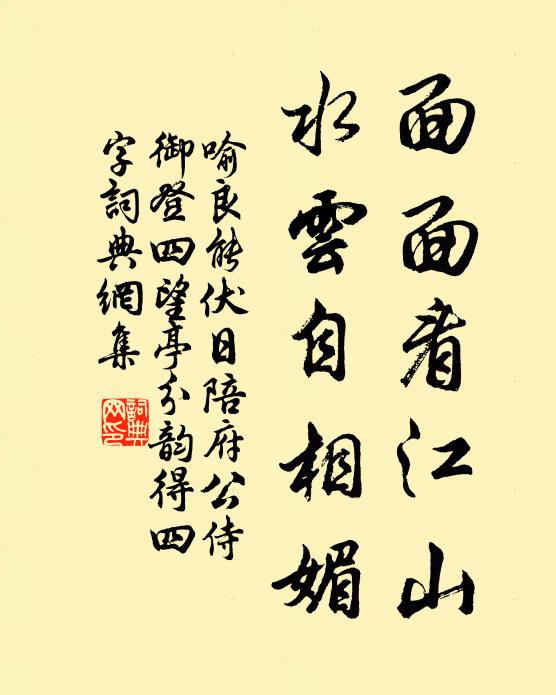 面面看江山
水雲自相媚
喻良能伏日陪府公侍
御登四望亭分韵得四
字詞典網集
詞典
网印